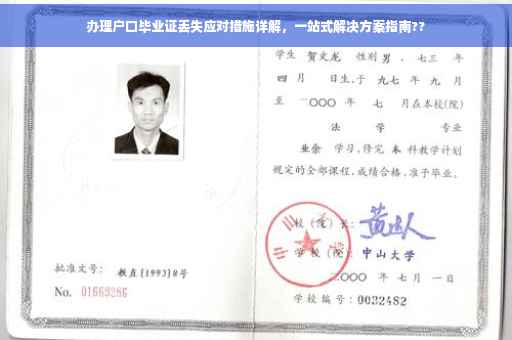 办理户口毕业证丢失应对措施详解，一站式解决方案指南??
学生 贺文龙 性别 男，七三 年
四 月 日生，于 九七 年 九 月
至 二〇〇〇 年 七 月在本校(院)
法 学 专业
业余 学习，修完 本 科教学计划
规定的全部课程，成绩合格，准予毕业。
校(院)长：
学 校(院) 中山大学
二〇〇〇 年 七 月 一 日
学校编号：0032482
批准文号： 教直[1993]8号
No. 01669286